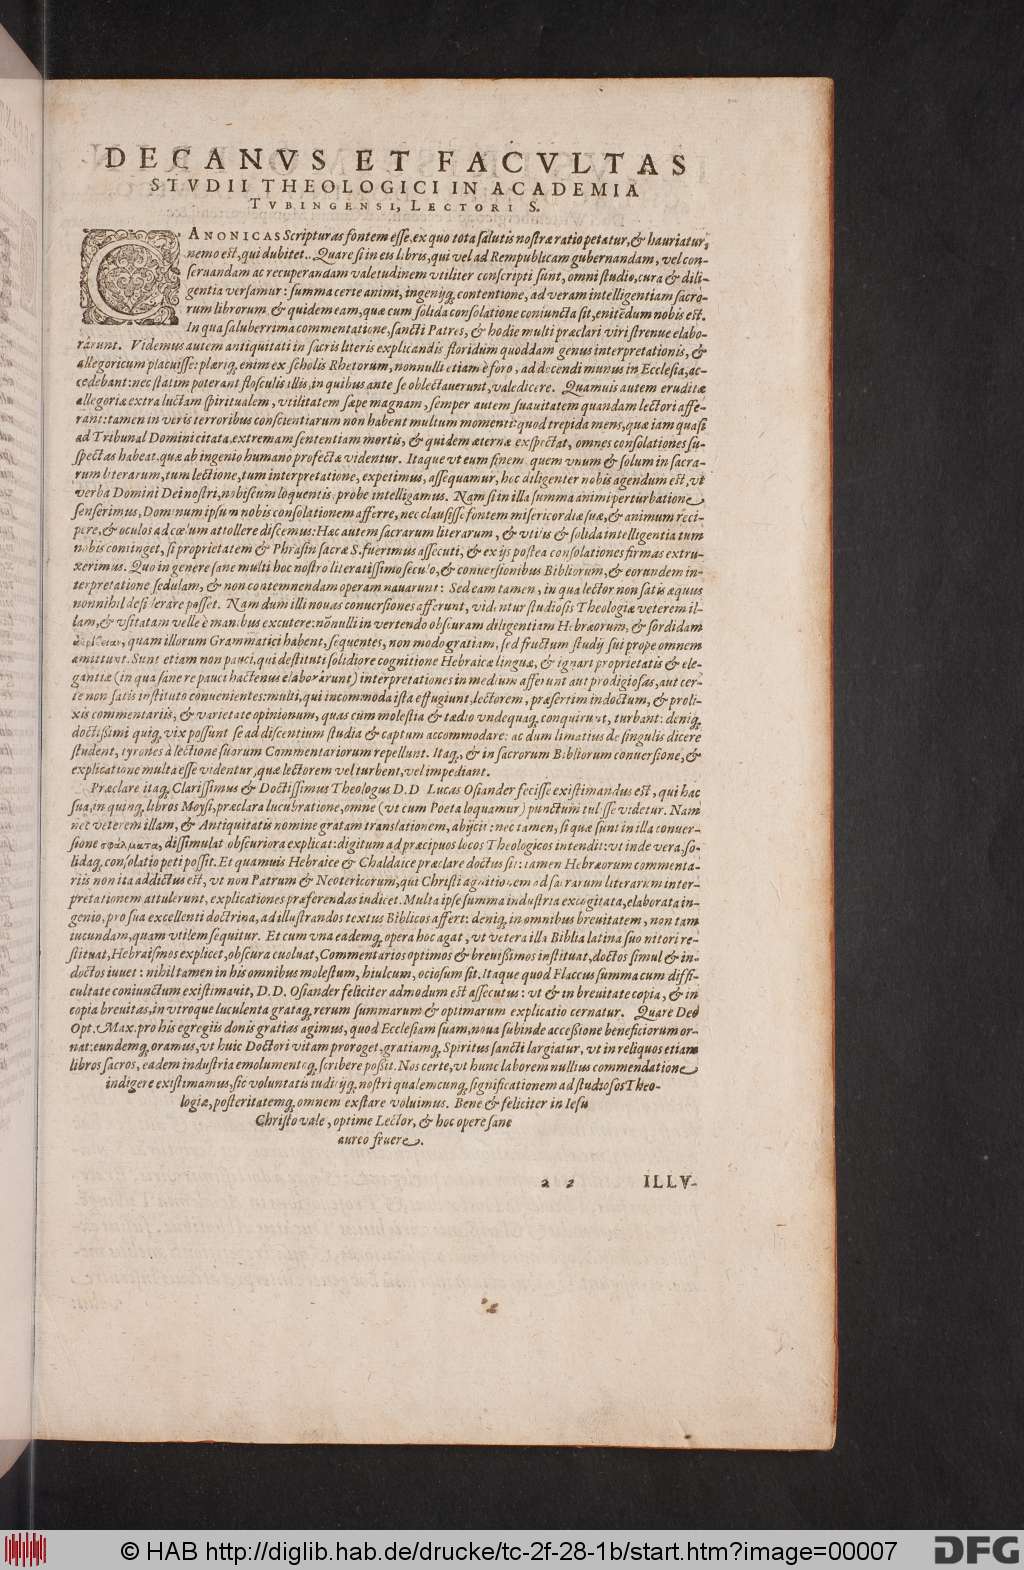 DECANVS ET FACVLTAS
STVDII THEOLOGICI IN ACADEMIA
TVBINGENSI, LECTORI S.
CANONICAS Scripturas fontem esse, ex quo tota salutis nostræ ratio petatur, & hauriatur,
nemo est, qui dubitet.. Quare si in eis libris, qui vel ad Rempublicam gubernandam, vel con-
seruandam ac recuperandam valetudinem vtiliter conscripti sunt, omni studio, cura & dili-
gentia versamur: summa certe animi, ingenijq́, contentione, ad veram intelligentiam sacro-
rum librorum & quidem eam, quæ cum solida consolatione coniuncta sit, enitēdum nobis est.
In qua saluberrima commentatione, sancti Patres, & hodie multi præclari viri strenue elabo-
rārunt. Videmus autem antiquitati in sacris literis explicandis floridum quoddam genus interpretationis, &
allegoricum placuisse: pleriq́, enim ex scholis Rhetorum, nonnulli etiam è foro, ad docendi munus in Ecclesia, ac-
cedebant: nec statim poterant flosculis illis, in quibus ante se oblectauerunt, valedicere. Quamuis autem eruditæ
allegoriæ extra luctam spiritualem, vtilitatem sæpe magnam, semper autem suauitatem quandam lectori affe-
rant: tamen in veris terroribus conscientiarum non habent multum momenti: quod trepida mens, quæ iam quasi
ad Tribunal Domini citata, extremam sententiam mortis, & quidem æternæ exspectat, omnes consolationes su-
spectas habeat, quæ ab ingenio humano profectæ videntur. Itaque vt eum finem, quem vnum & solum in sacra-
rum literarum, tum lectione, tum interpretatione, expetimus, assequamur, hoc diligenter nobis agendum est, vt
verba Domini Dei nostri, nobiscum loquentis, probe intelligamus. Nam si in illa summa animi perturbatione
senserimus, Dominum ipsum nobis consolationem afferre, nec clausisse fontem misericordiæ suæ, & animum reci-
pere, & oculos ad cœlum attollere discemus: Hæc autem sacrarum literarum, & vtilis & solida intelligentia tum
nobis continget, si proprietatem & Phrasin sacræ S. fuerimus assecuti, & ex ijs postea consolationes firmas extru-
xerimus. Quo in genere sane multi hoc nostro literatissimo seculo, & conuersionibus Bibliorum, & eorundem in-
terpretatione sedulam, & non contemnendam operam nauarunt: Sed eam tamen, in qua lector non satis æquus
nonnihil desiderare posset. Nam dum illi nouas conuersiones afferunt, videntur studiosis Theologiæ veterem il-
lam, & vsitatam velle è manibus excutere: nōnulli in vertendo obscuram diligentiam Hebræorum, & sordidam
quam illorum Grammatici habent, sequentes, non modo gratiam, sed fructum studij sui prope omnem
amittunt. Sunt etiam non pauci, qui destituti solidiore cognitione Hebraicæ linguæ, & ignari proprietatis & ele-
gantiæ (in qua sane re pauci hactenus elaborārunt) interpretationes in medium afferunt aut prodigiosas, aut cer-
te non satis instituto conuenientes: multi, qui incommoda ista effugiunt, lectorem, præsertim indoctum, & proli-
xis commentariis, & varietate opinionum, quas cùm molestia & tædio vndequaq́, conquirunt, turbant: deniq́,
doctissimi quiq́, vix possunt se ad discentium studia & captum accommodare: ac dum limatius de singulis dicere
student, tyrones à lectione suorum Commentariorum repellunt. Itaq́, & in sacrorum Bibliorum conuersione, &
explicatione multa esse videntur, quæ lectorem vel turbent, vel impediant.
Præclare itaq́, Clarissimus & Doctissimus Theologus D.D Lucas Osiander fecisse existimandus est, qui hac
sua, in quinq́, libros Moysi, præclara lucubratione, omne (vt cum Poeta loquamur) punctum tulisse videtur. Nam
nec veterem illam, & Antiquitatis nomine gratam translationem, abijcit: nec tamen, si quæ sunt in illa conuer-
sione σφάλματα, dissimulat obscuriora explicat: digitum ad præcipuos locos Theologicos intendit: vt inde vera, so-
lidaq́, consolatio peti possit. Et quamuis Hebraice & Chaldaice præclare doctus sit: tamen Hebræorum commenta-
riis non ita addictus est, vt non Patrum & Neotericorum, qui Christi agnitionem ad sacrarum literarum inter-
pretationem attulerunt, explicationes præferendas iudicet. Multa ipse summa industria excogitata, elaborata in-
genio, pro sua excellenti doctrina, ad illustrandos textus Biblicos affert: deniq́, in omnibus breuitatem, non tam
iucundam, quam vtilem sequitur. Et cum vna eademq́, opera hoc agat, vt vetera illa Biblia latina suo nitori re-
stituat, Hebraismos explicet, obscura euoluat, Commentarios optimos & breuissimos instituat, doctos simul & in-
doctos iuuet: nihil tamen in his omnibus molestum, hiulcum, ociosum sit. Itaque quod Flaccus summa cum diffi-
cultate coniunctum existimauit, D.D. Osiander feliciter admodum est assecutus: vt & in breuitate copia, & in
copia breuitas, in vtroque luculenta grataq́, rerum summarum & optimarum explicatio cernatur. Quare Deo
Opt. Max. pro his egregiis donis gratias agimus, quod Ecclesiam suam, noua subinde accessione beneficiorum or-
nat: eundemq́, oramus, vt huic Doctori vitam proroget, gratiamq́, Spiritus sancti largiatur, vt in reliquos etiam
libros sacros, eadem industria emolumentoq́, scribere possit. Nos certe, vt hunc laborem nullius commendatione
indigere existimamus, sic voluntatis iudicijq́, nostri qualemcunq́, significationem ad studiosos Theo-
logiæ, posteritatemq́, omnem exstare voluimus. Bene & feliciter in Iesu
Christo vale, optime Lector, & hoc opere sane
aureo fruere.
a 2 ILLV-
© HAB http://diglib.hab.de/drucke/tc-2f-28-1b/start.htm?image=00007
DFG